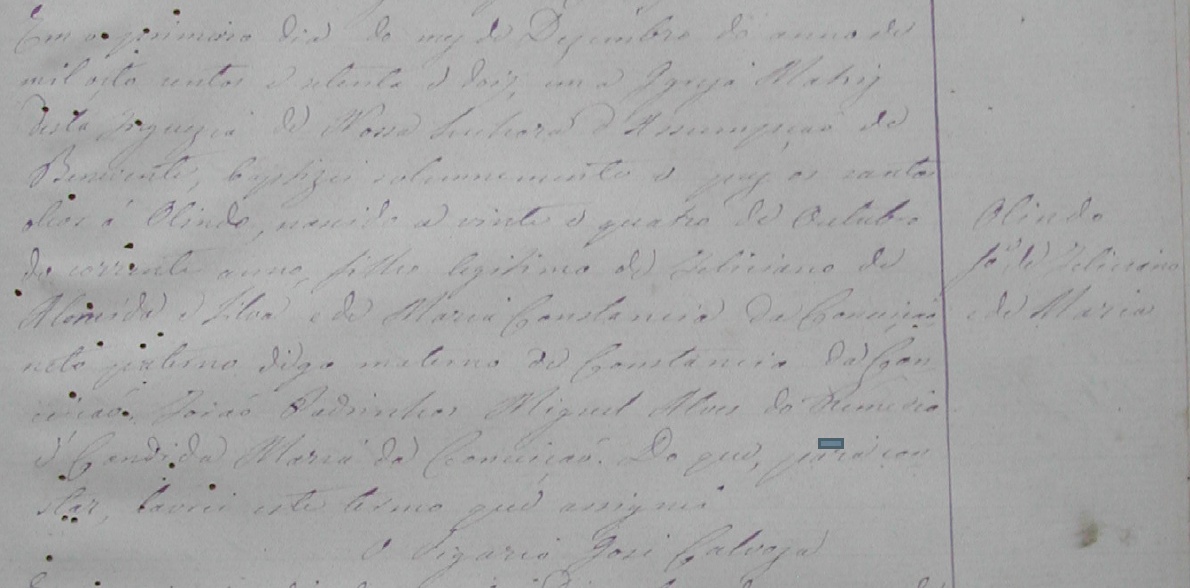 Em o primeiro dia do mez de Dezembro do anno de
mil oito centos e setenta e dois, em a Igreja Matriz
desta Freguezia de Nossa Senhora d'Assumpção de
Benevente, baptizei solemnemente e puz os santos
oleos á Olindo, nascido a vinte e quatro de Outubro
do corrente anno, filho legitimo de Feliciano de
Almeida e Silva e de Maria Constancia da Conceição
neto paterno digo materno de Constancia da Con
ceicaõ. Foraõ Padrinhos Miguel Alves do
e Candida Maria da Conceiçaõ. Do que, para con
star, lavrei este termo que assigno
O Vigario José
Olindo
fo. de Feliciano
e de Maria